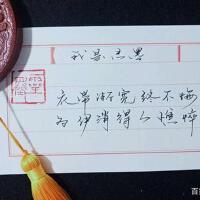 我是不黑
衣带渐宽终不悔
为伊消得人憔悴